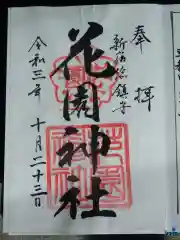 奉拝
新宿総鎮守
花園神社
令和三年
十月二十三日